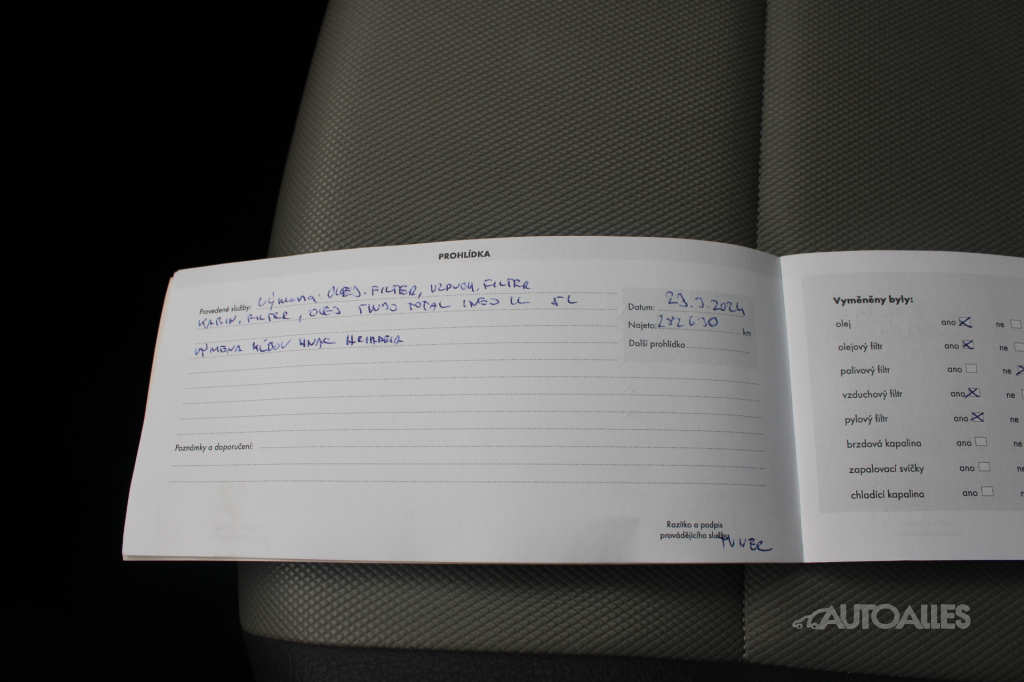 PROHLÍDKA
Provedené služby: Výmena: OLEJ. FILTER, VZDUCH. FILTER
KABIN. FILTER, OLEJ 5W30 TOTAL INEO 5L
VÝMENA KĹBOV HNAC. HRIADEĽA
Poznámky a doporučení:
Datum: 29.3.2024
Najeto: 282630 km
Další prohlídka
Razítko a podpis
provádějícího služby
Vyměněny byly:
olej ano ne
olejový filtr ano ne
palivový filtr ano ne
vzduchový filtr ano ne
pylový filtr ano ne
brzdová kapalina ano ne
zapalovací svíčky ano
chladicí kapalina ano
AUTOALLES